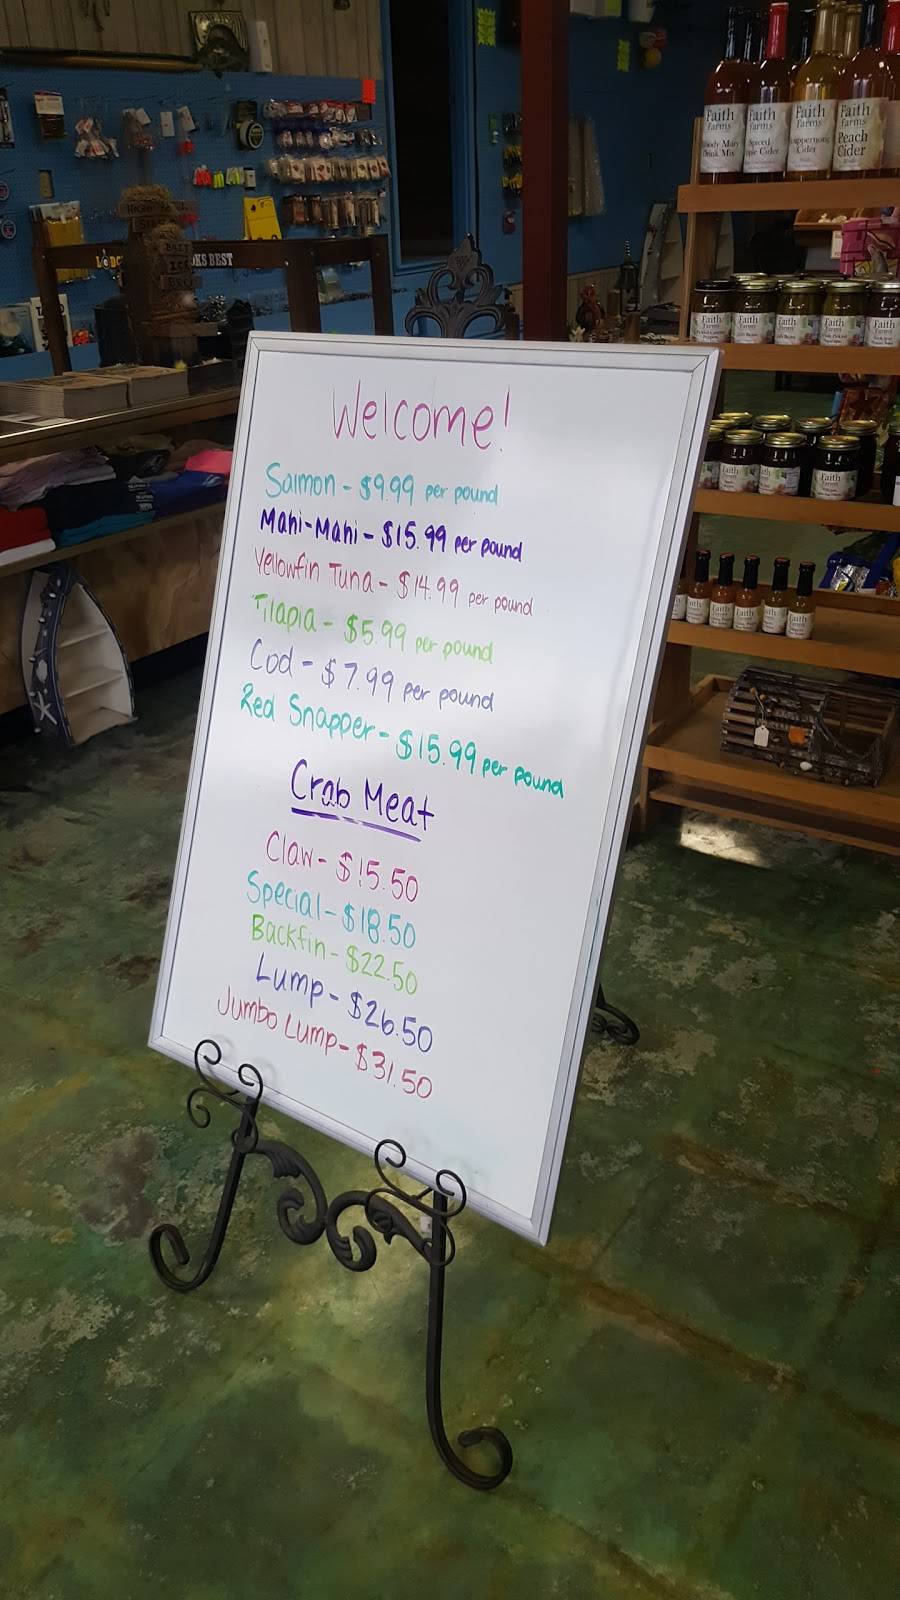 Welcome!
Salmon - $9.99 per pound
Mahi-Mahi - $15.99 per pound
Yellowfin Tuna - $14.99 per pound
Tilapia - $5.99 per pound
Cod - $7.99 per pound
Red Snapper - $15.99 per pound
Crab Meat
Claw - $15.50
Special - $18.50
Backfin - $22.50
Lump - $26.50
Jumbo Lump - $31.50
Faith
Farms
Drink Mix
Faith
Farms
Spiced
Cider
Faith
Farms
Cider
Faith
Farms
Peach
Cider
Faith
Faith
Faith
Faith
Faith
Faith
Faith
Faith
BAIT
ICE
KS BEST